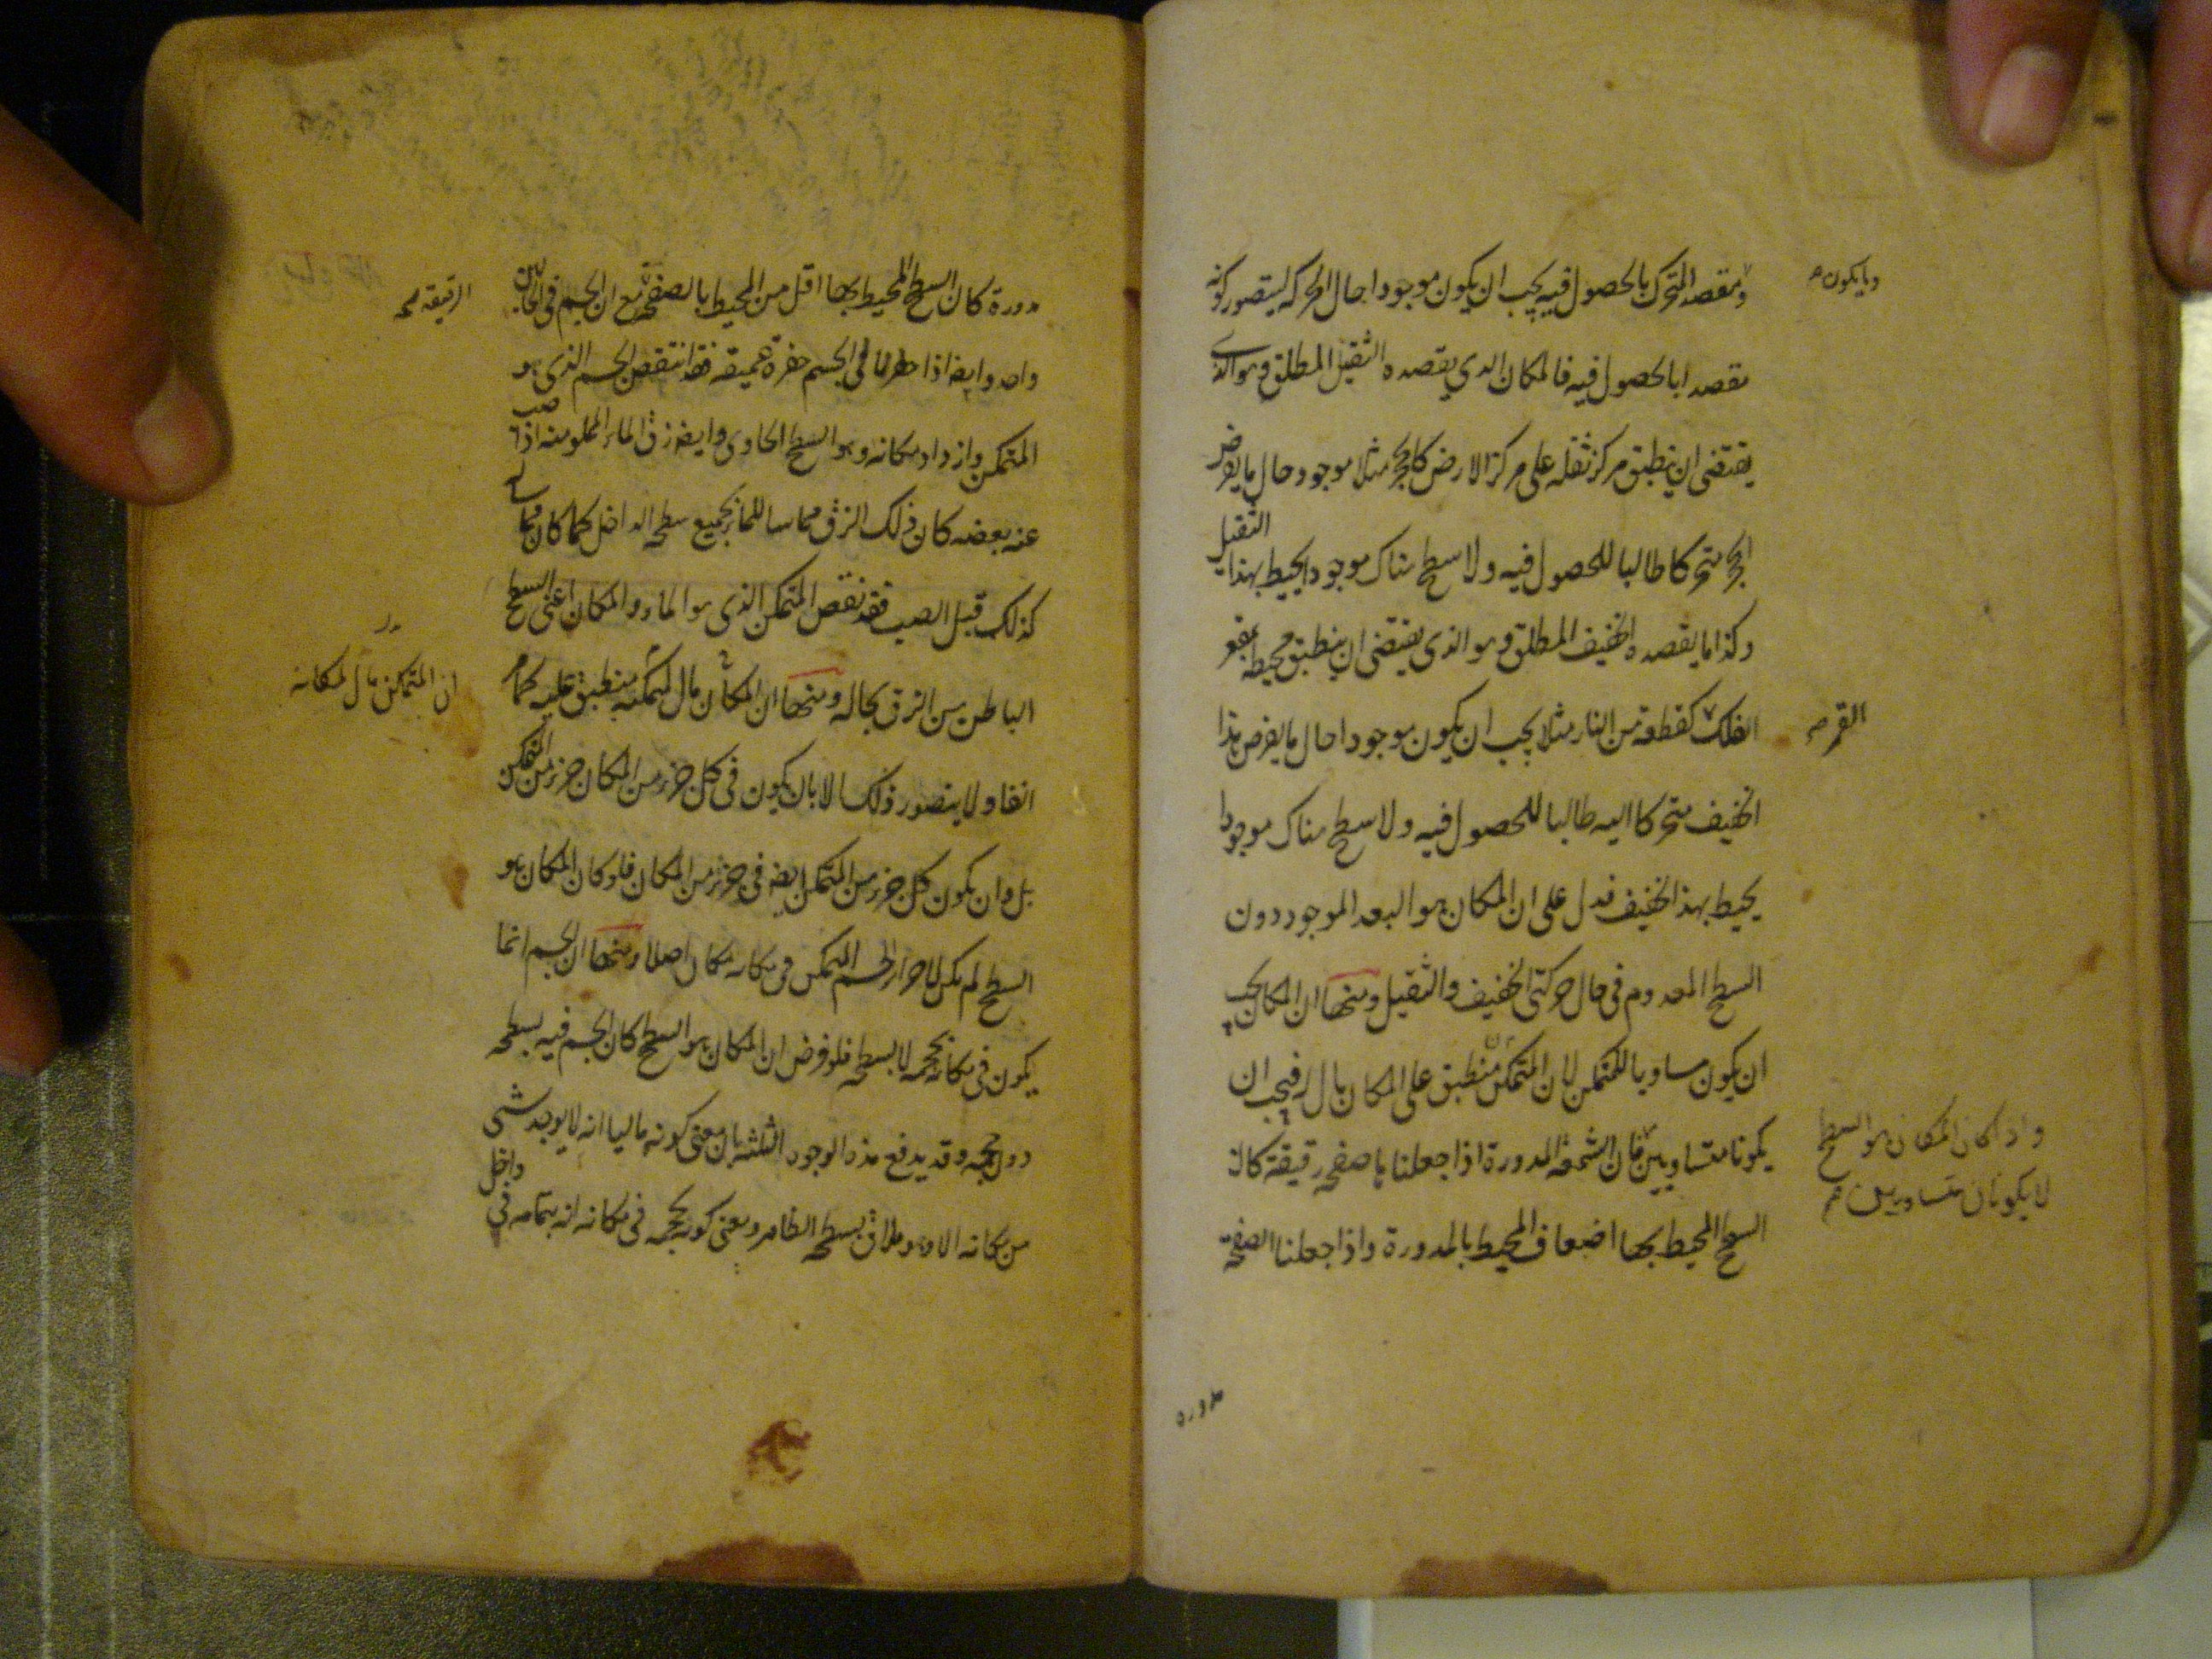 ومقصد المتحرك بالحصول فيه يجب ان يكون موجودا حال الحركة ليتصور كونه
وما يكون
مقصدا بالحصول فيه فالمكان الذي يقصده الثقيل المطلق وهو الذي
يقتضي ان ينطبق مركز ثقله على مركز الارض كالحجر مثلا موجود حال ما يفرض
الحجر متحركا طالبا للحصول فيه ولا سطح هناك موجود يحيط بهذا الثقيل
وكذا ما يقصده الخفيف المطلق وهو الذي يقتضي ان ينطبق محيطه بمقعر
الفلك كقطعة من النار مثلا يجب ان يكون موجودا حال ما يفرض هذا
القمر
الخفيف متحركا اليه طالبا للحصول فيه ولا سطح هناك موجودا
يحيط بهذا الخفيف فدل على ان المكان هو البعد الموجود دون
السطح المعدوم في حال حركتي الخفيف والثقيل ومنها ان المكان يجب
ان يكون مساويا للمتمكن لان المتمكن منطبق على المكان مال له فيجب ان
يكونا متساويين فان الشمعة المدورة اذا جعلناها صفحة رقيقة كان
واذا كان المكان هو السطح
لا يكونان متساويين
السطح المحيط بها اضعاف المحيط بالمدورة واذا جعلنا الصفحة
مدورة
مدورة كان السطح المحيط بها اقل من المحيط بالصفحة مع ان الجسم في الحالين
الرقيقة
واحد وايضا اذا حفرنا في الجسم حفرة عميقة فقد انتقص الجسم الذي هو
المتمكن وازداد مكانه وهو السطح الحاوي وايضا زق الماء المملو منه اذا صب
عنه بعضه كان ذلك الزق مماسا للماء بجميع سطحه الداخل كما كان مماسا له
كذلك قبل الصب فقد نقص المتمكن الذي هو الماء والمكان اعني السطح
الباطن من الزق بحاله ومنها ان المكان مال لمتمكنه منطبق عليه كما
ان المتمكن مال لمكانه
انفا ولا يتصور ذلك الا بان يكون في كل جزء من المكان جزء من المتمكن
بل وان يكون كل جزء من المتمكن ايضا في جزء من المكان فلو كان المكان هو
السطح لم يكن لاجزاء الجسم المتمكن في مكانه مكان اصلا ومنها ان الجسم انما
يكون في مكانه بحجمه لا بسطحه فلو فرض ان المكان هو السطح كان الجسم فيه بسطحه
دون حجمه وقد يدفع هذه الوجوه الثلثة بان معنى كونه ماليا انه لا يوجد شيء
من مكانه الا وهو ملاق بسطحه الظاهر ومعنى كونه بحجمه في مكانه انه بتمامه في داخل